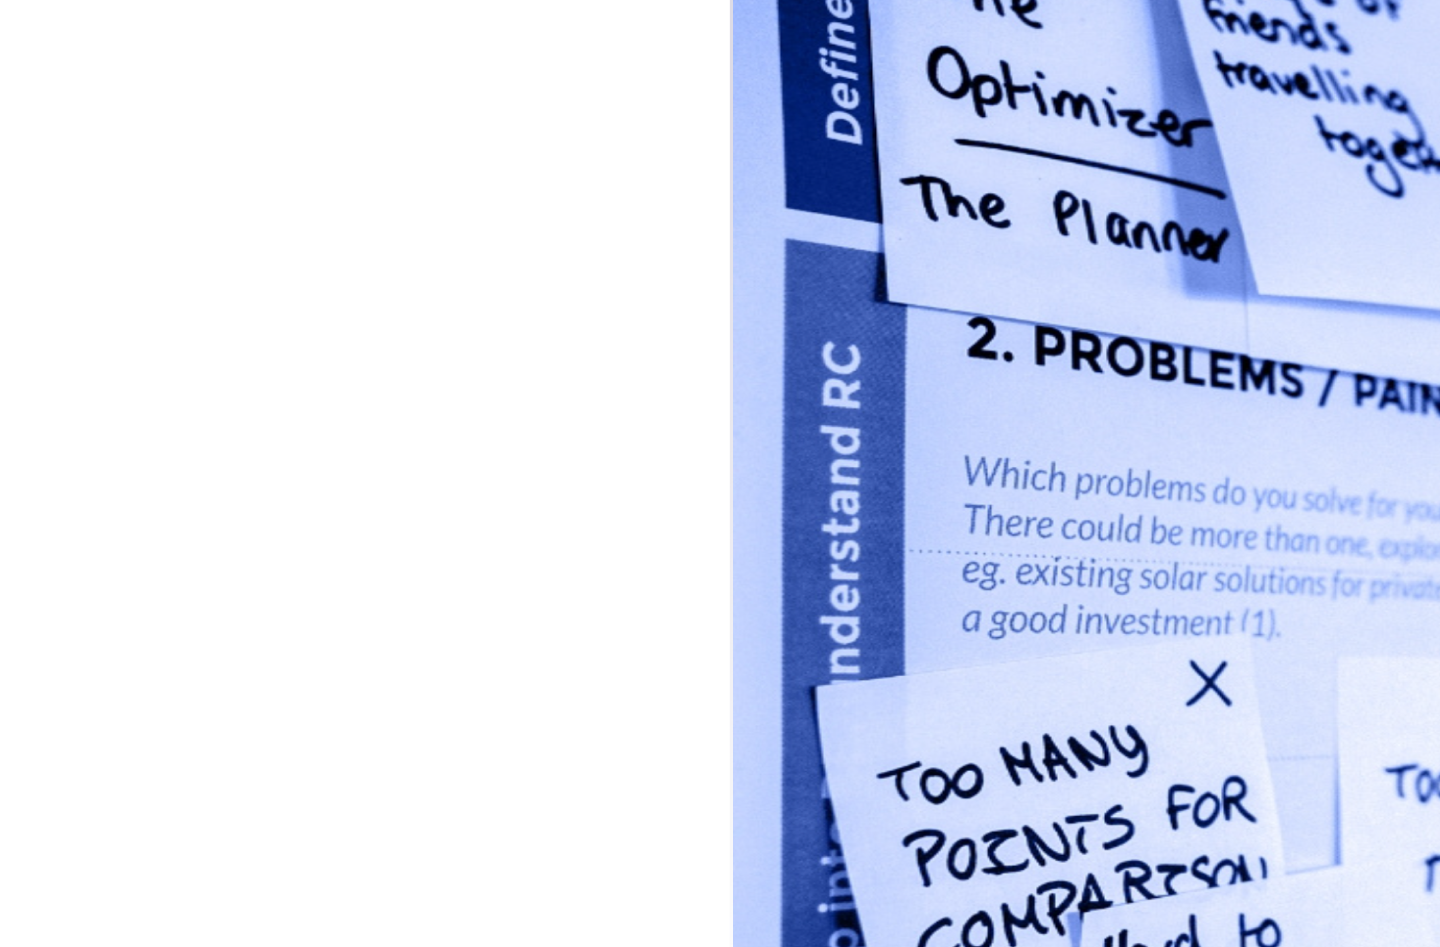 Define
Optimizer
The Planner
friends
travelling
2. PROBLEMS /
Understand RC
Which problems do you solve for
There could be more than one,
eg. existing solar solutions for
a good investment (1).
X
TOO MANY
POINTS FOR
COMPARISON
to